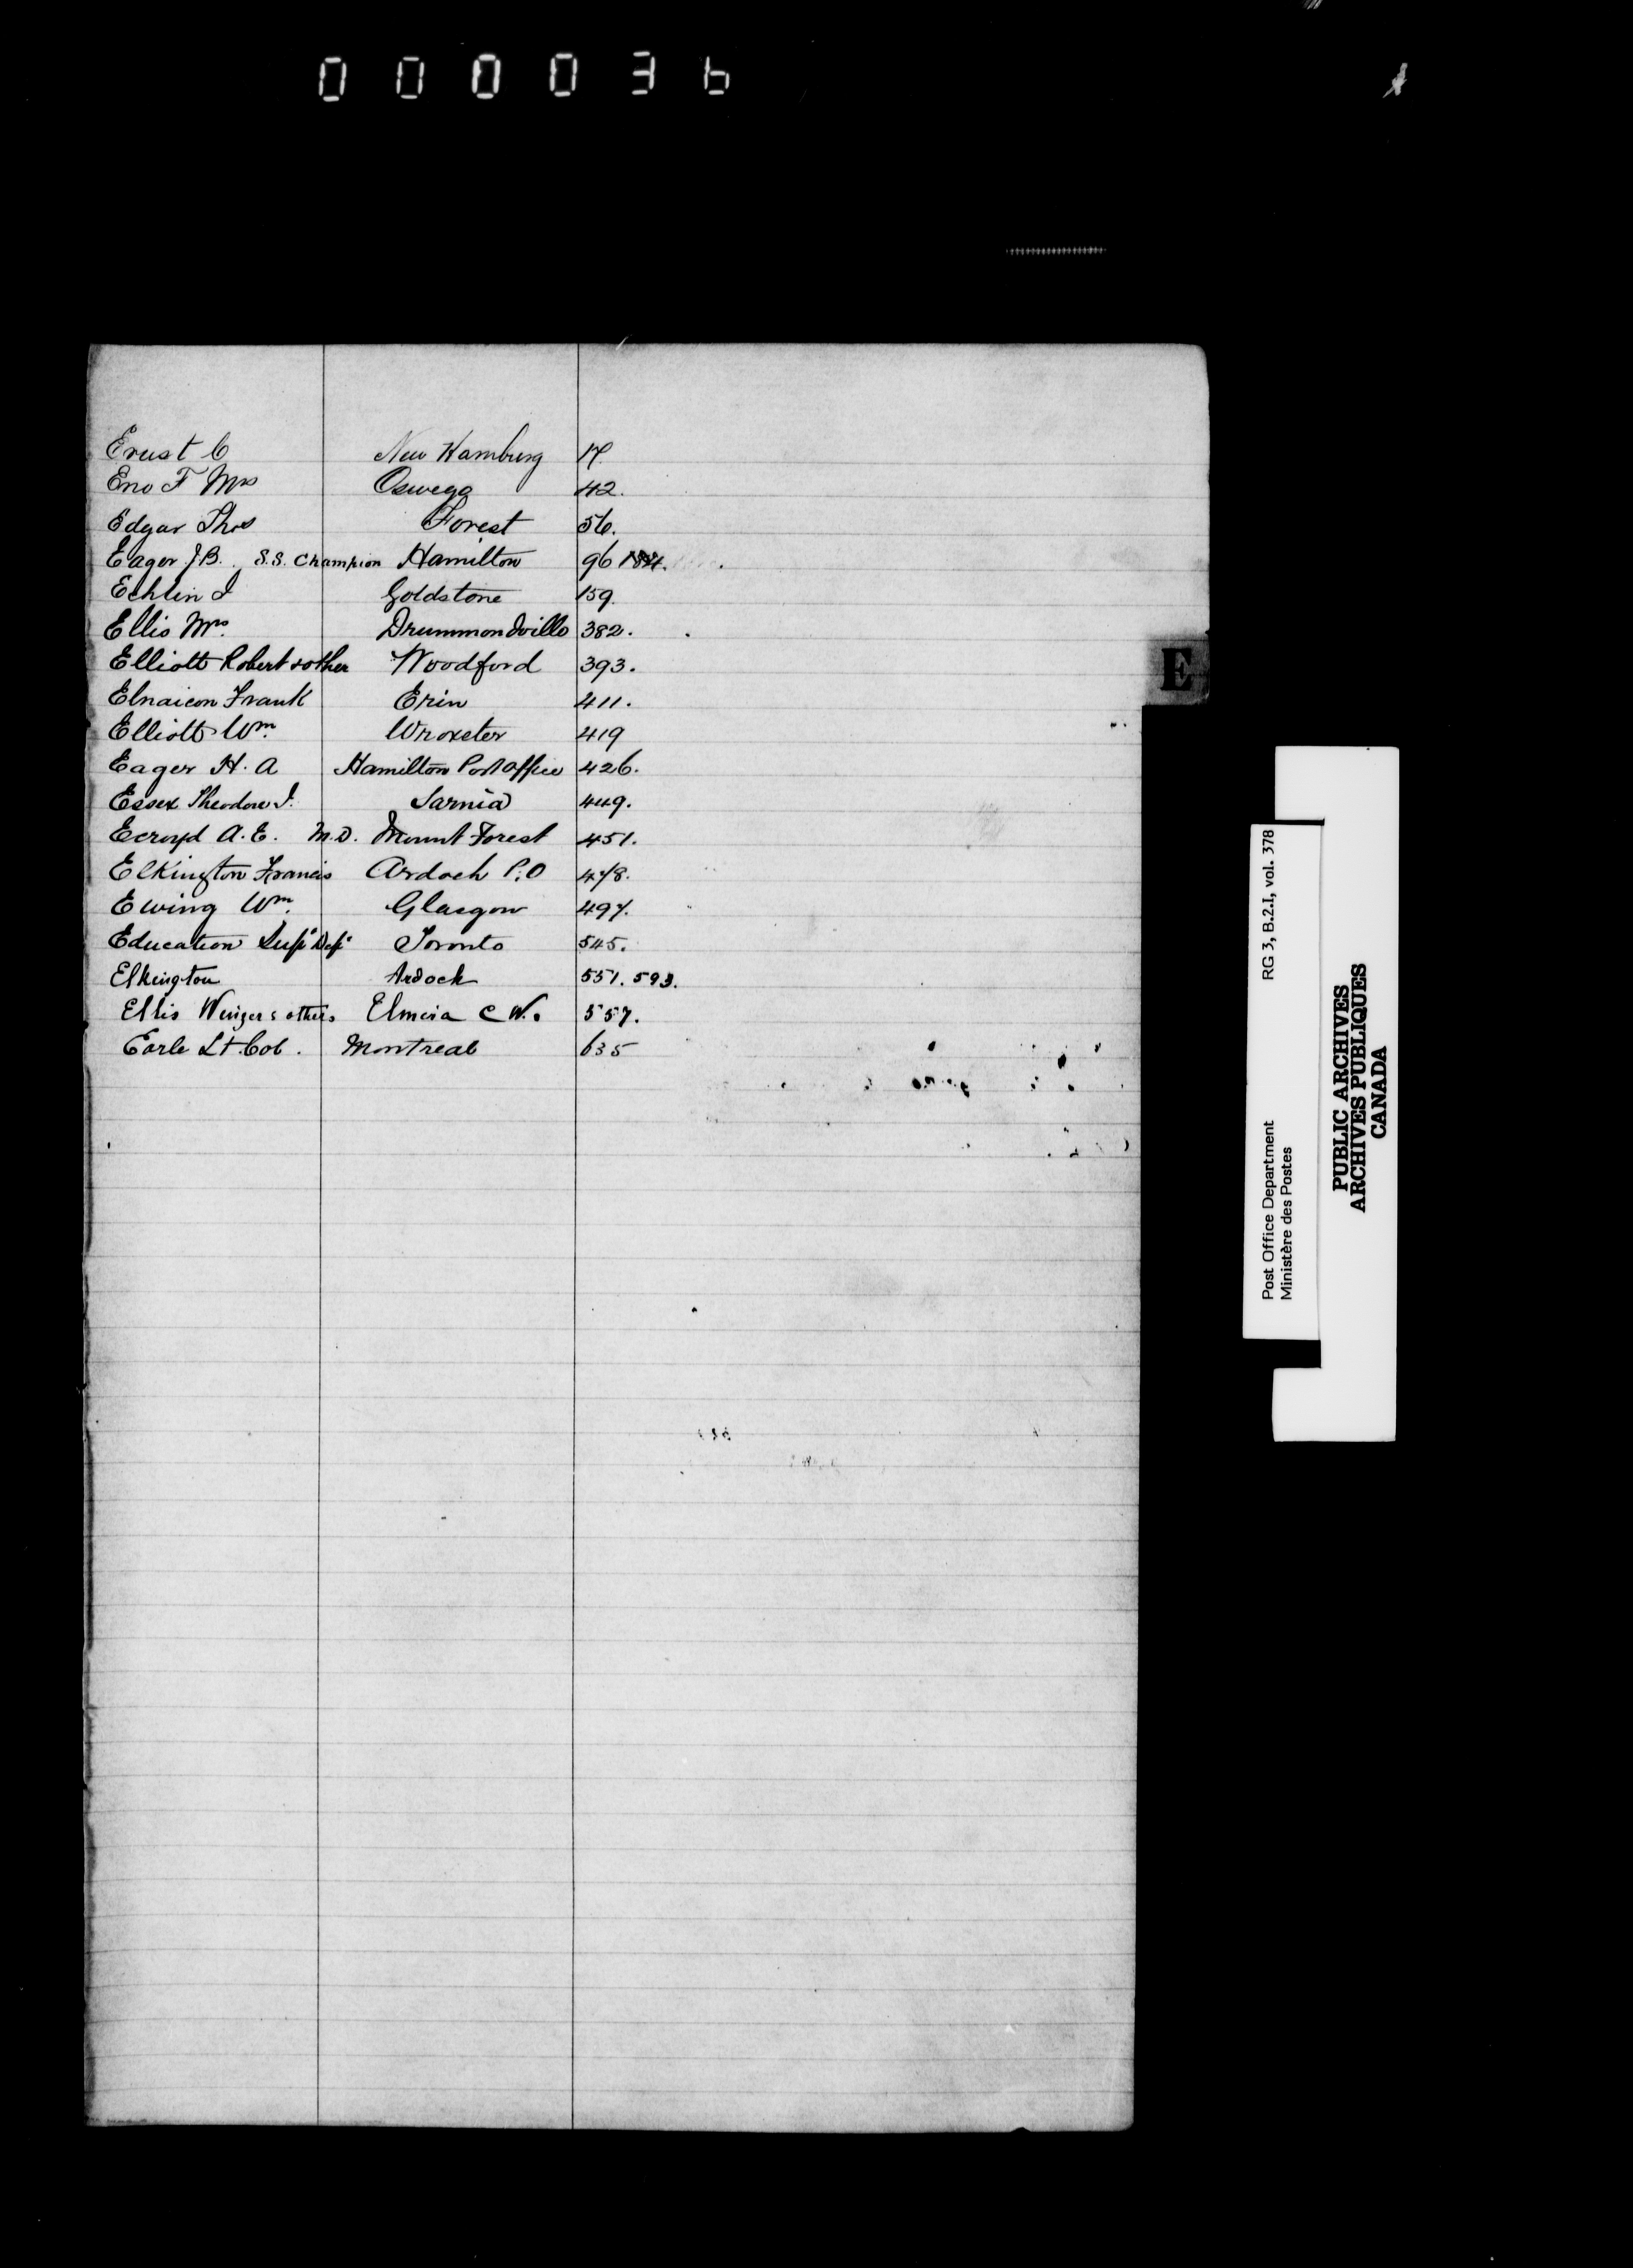 000036
Ernst C New Hamburg 17.
Eno F Mrs Oswego 42.
Edgar Thos Forest 56.
Eager J.B. S.S. Champion Hamilton 96 184.
Echlin J Goldstone 159.
Ellis Mrs. Drummondville 382.
Elliott Robert & other Woodford 393.
Elnaicon Frank Erin 411.
Elliott Wm. Wroxeter 419
Eager H. A Hamilton Post office 426.
Essex Theodore J. Sarnia 449.
Ecroyd A. E. M.D. Mount Forest 451.
Elkington Francis Ardoch P.O 478.
Ewing Wm. Glasgow 497.
Education Supt Dept Toronto 545.
Elkington Ardock 551. 593.
Ellis Wenger & others Elmira C W. 557.
Earle Lt. Col. Montreal 635
E
Post Office Department RG 3, B.2.I, vol. 378
Ministère des Postes
PUBLIC ARCHIVES
ARCHIVES PUBLIQUES
CANADA